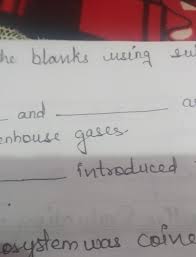 he blanks using su
and
enhouse gases
introduced
osystem was coine